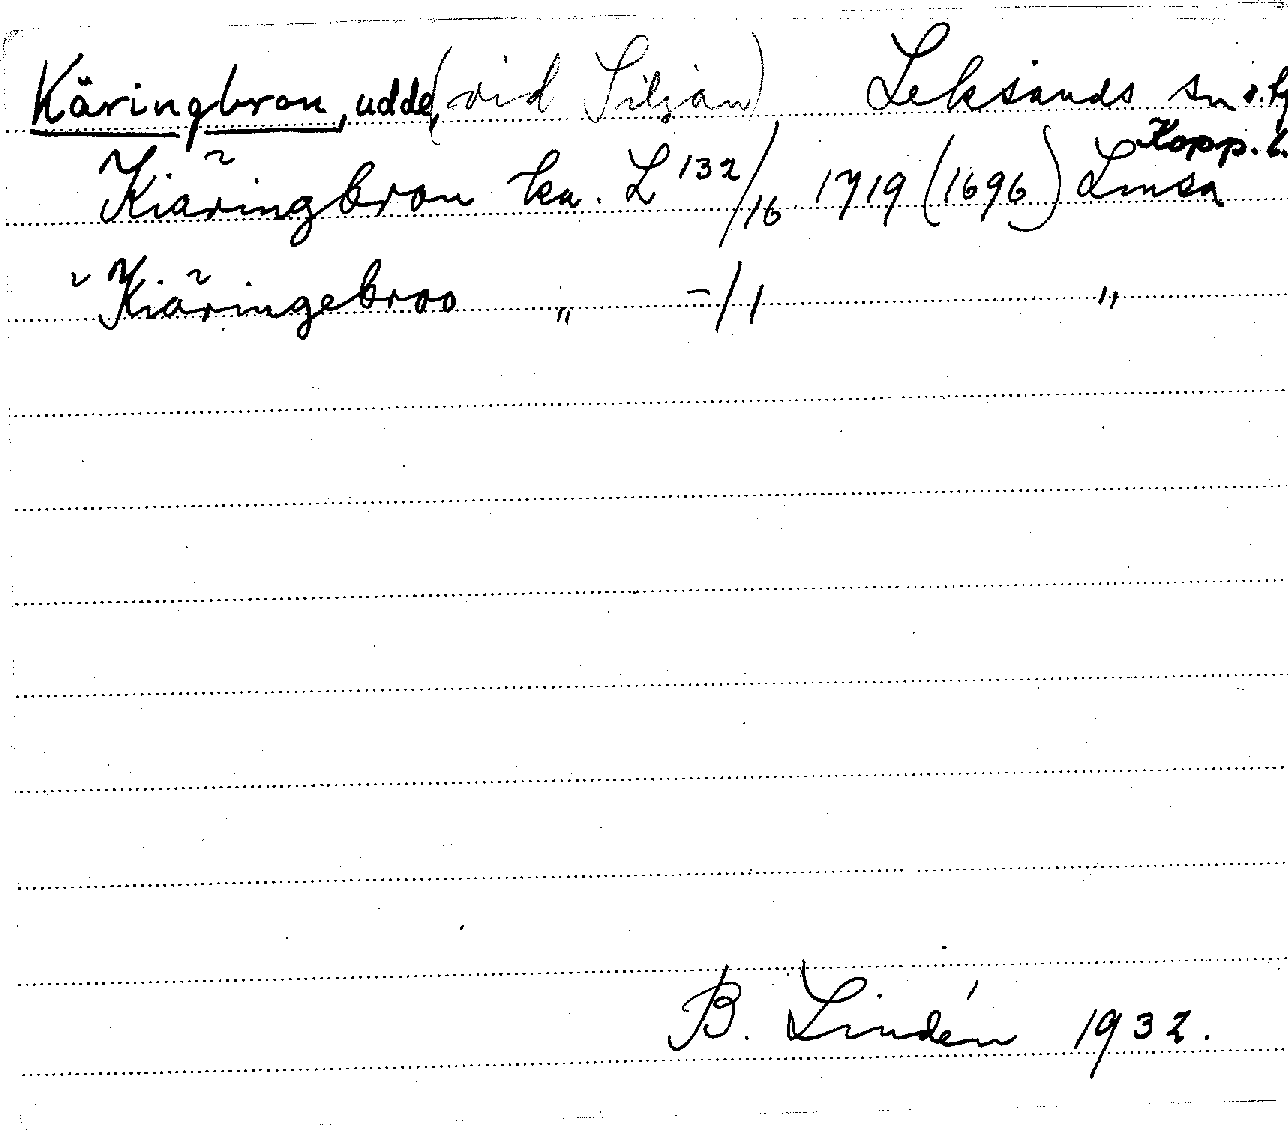 Käringbron, udde, (vid Siljan) Leksands sn o. tg
Kopp. l.
Kiäringbron ka. L 132/16 1719 (1696) Lmsa
Kiäringebroo " -/1 "
B. Lindén 1932.